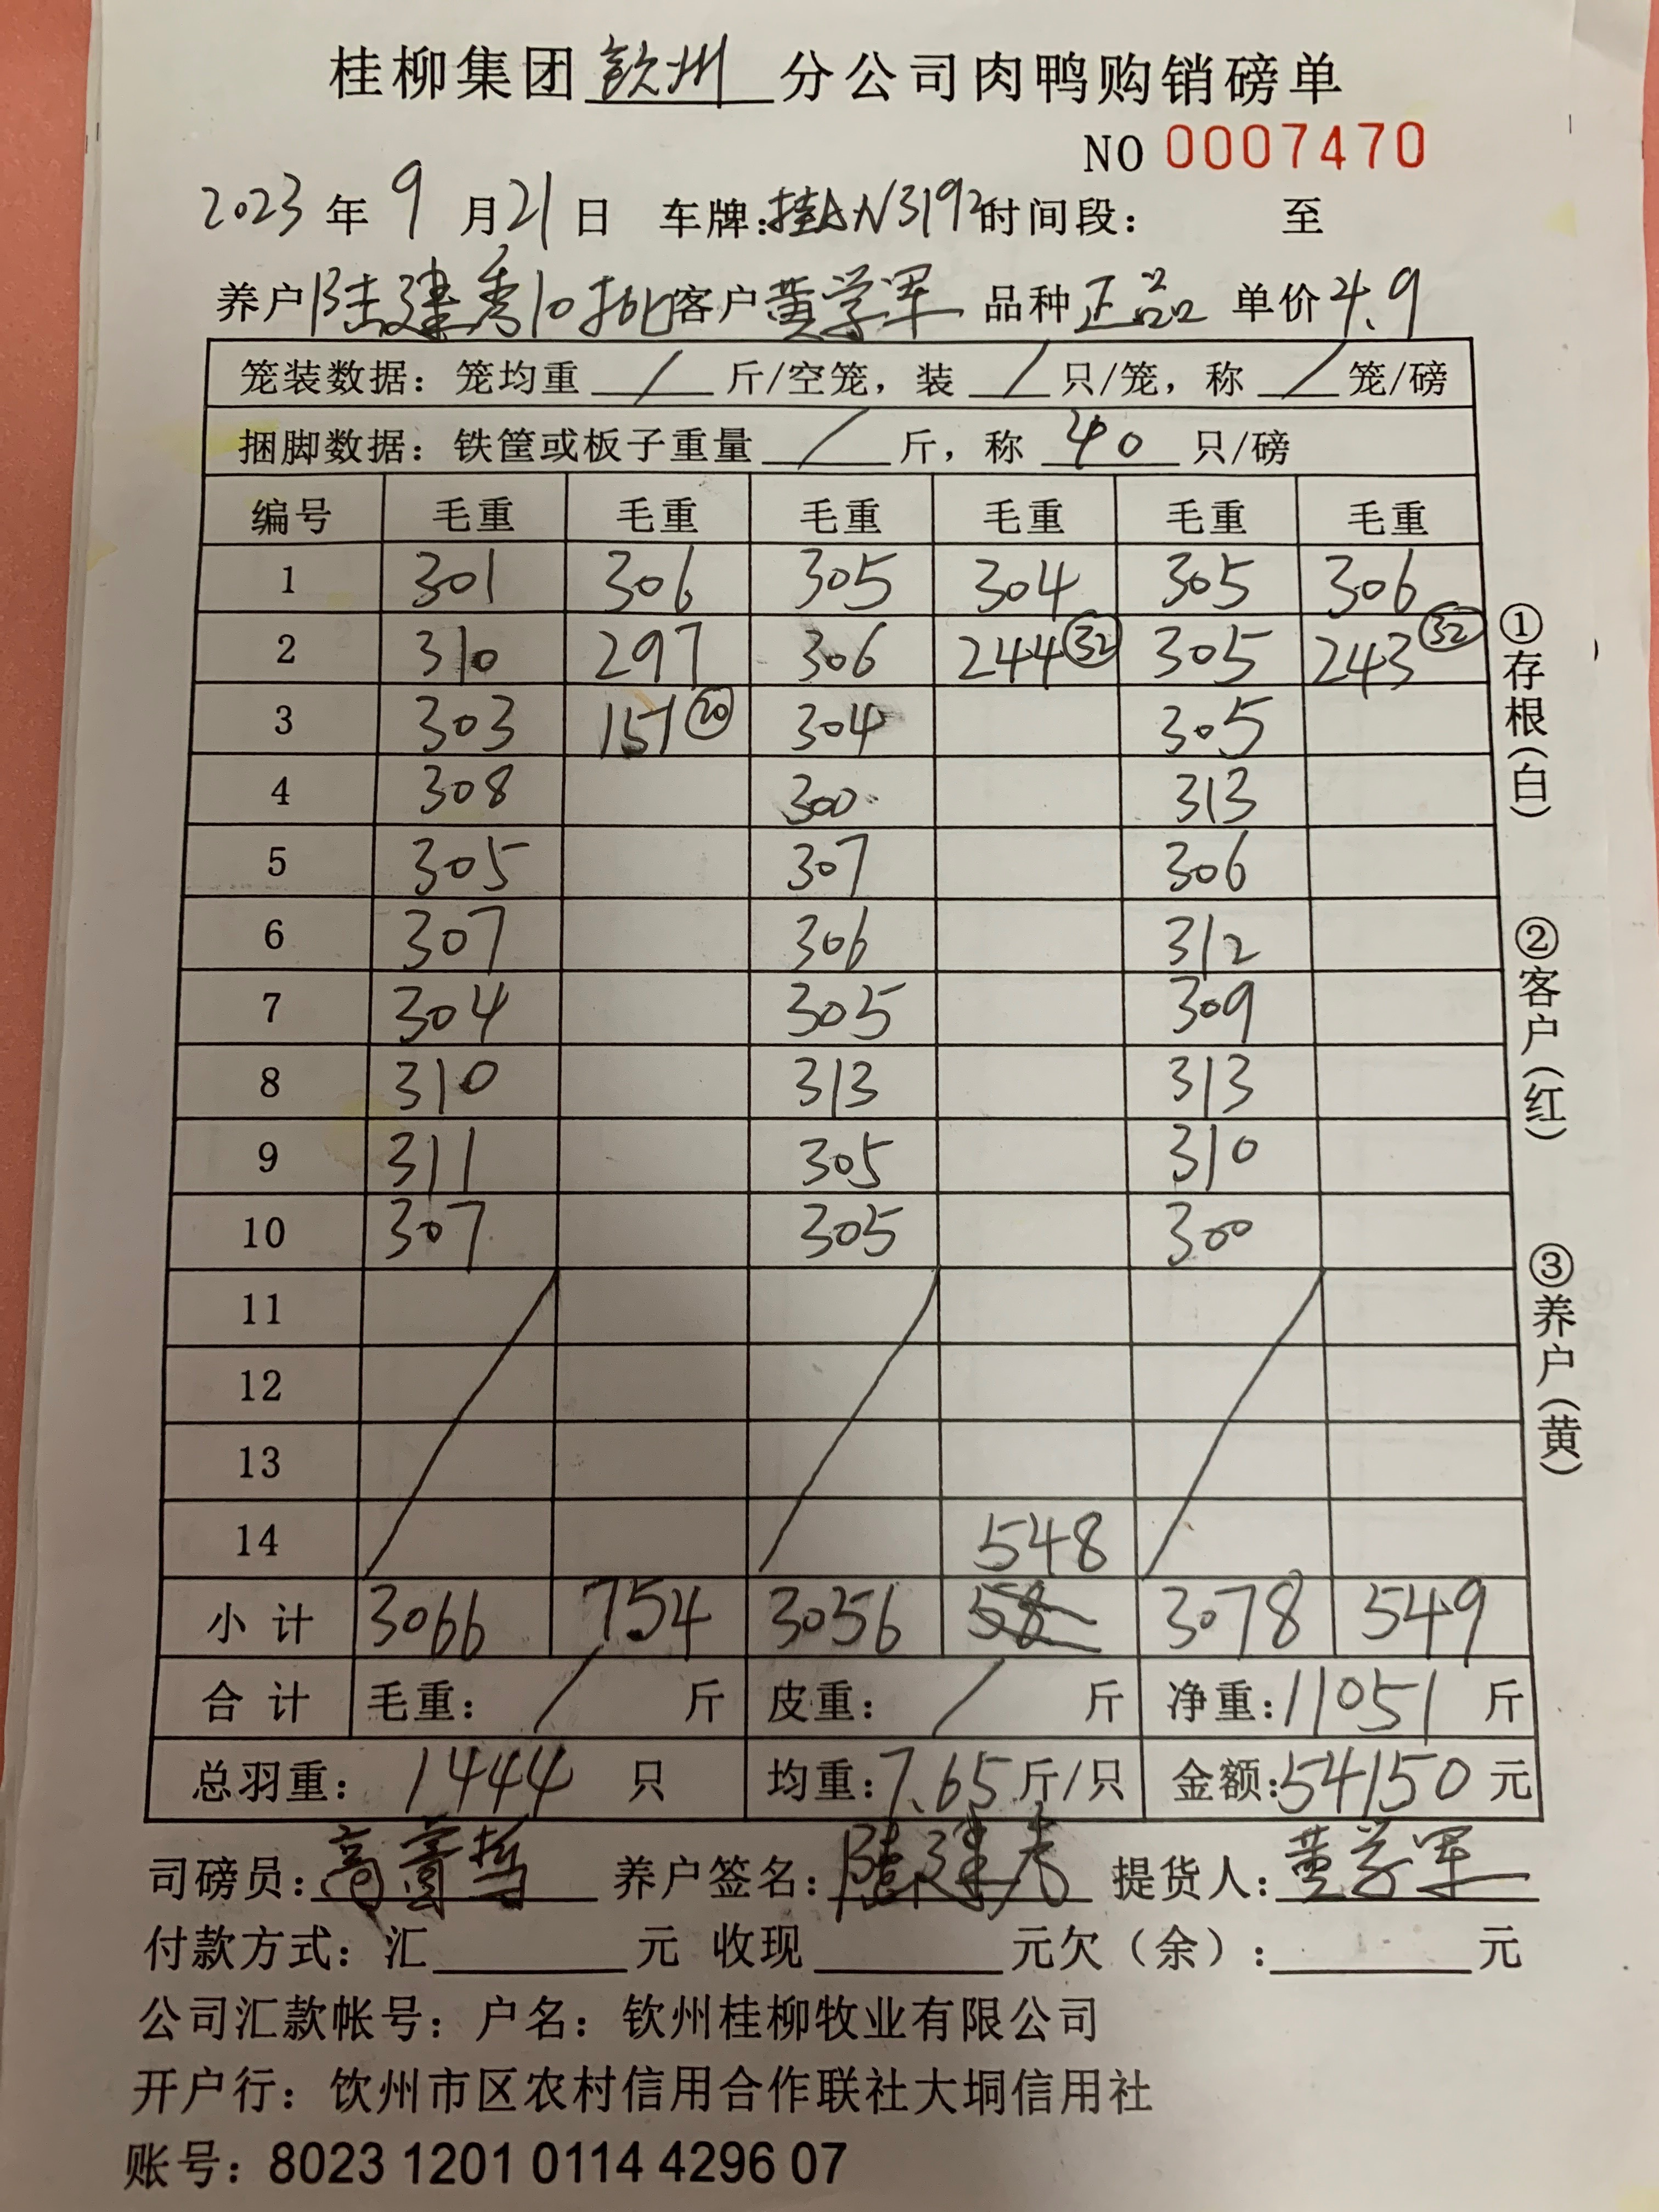 桂柳集团钦州分公司肉鸭购销磅单
NO 0007470
2023年9月21日 车牌:桂AN3192时间段: 至
养户陆建秀10批客户黄学军 品种正品 单价4.9
笼装数据:笼均重 / 斤/空笼,装 / 只/笼,称 / 笼/磅
捆脚数据:铁筐或板子重量 / 斤,称 40 只/磅
编号 毛重 毛重 毛重 毛重 毛重 毛重
1 301 306 305 304 305 306
2 310 297 306 244㉜ 305 243㉜
3 303 151⑳ 304 305
4 308 300 313
5 305 307 306
6 307 306 312
7 304 305 309
8 310 313 313
9 311 305 310
10 307 305 300
11
12
13
14 548
小计 3066 754 3056 58 3078 549
合计 毛重: / 斤 皮重: / 斤 净重:11051斤
总羽重: 1444 只 均重:7.65斤/只 金额:54150元
司磅员: 养户签名:陆建秀 提货人:黄学军
付款方式:汇 元 收现 元欠(余): 元
公司汇款帐号:户名:钦州桂柳牧业有限公司
开户行:钦州市区农村信用合作联社大垌信用社
账号:8023 1201 0114 4296 07
①存根(白)
②客户(红)
③养户(黄)